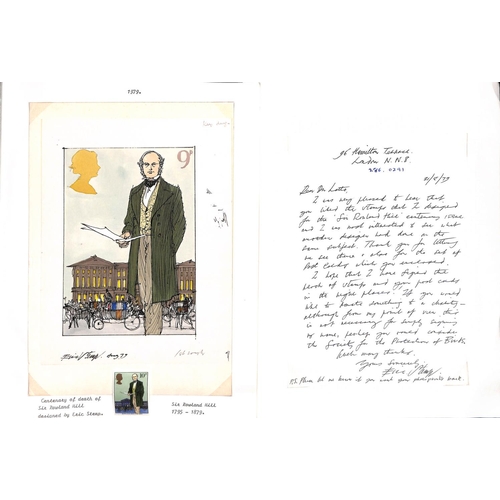 1979.
9p
Aug 79
Centenary of death of
Sir Rowland Hill
designed by Eric Stemp.
10p
Sir Rowland Hill
1795 - 1879.
96 Hamilton Terrace.
London N.W.8.
286. 0291
Dear Mr
I was very pleased to hear that
you liked the stamps that I designed
for the 'Sir Rowland Hill' centenary issue
and I was most interested to see what
another designer had done on the
same subject. Thank you for letting
me see these & also for the set of
Post Cards which you enclosed.
I hope that I have signed the
block of stamps and your post cards
in the right places. If you would
like to donate something to a charity -
although from my point of view this
is not necessary for simply signing
my name, perhaps you would consider
the Society for the Protection of Birds.
With many thanks.
Yours Sincerely,
Eric Stemp.
P.S. Please let me know if you want your back.